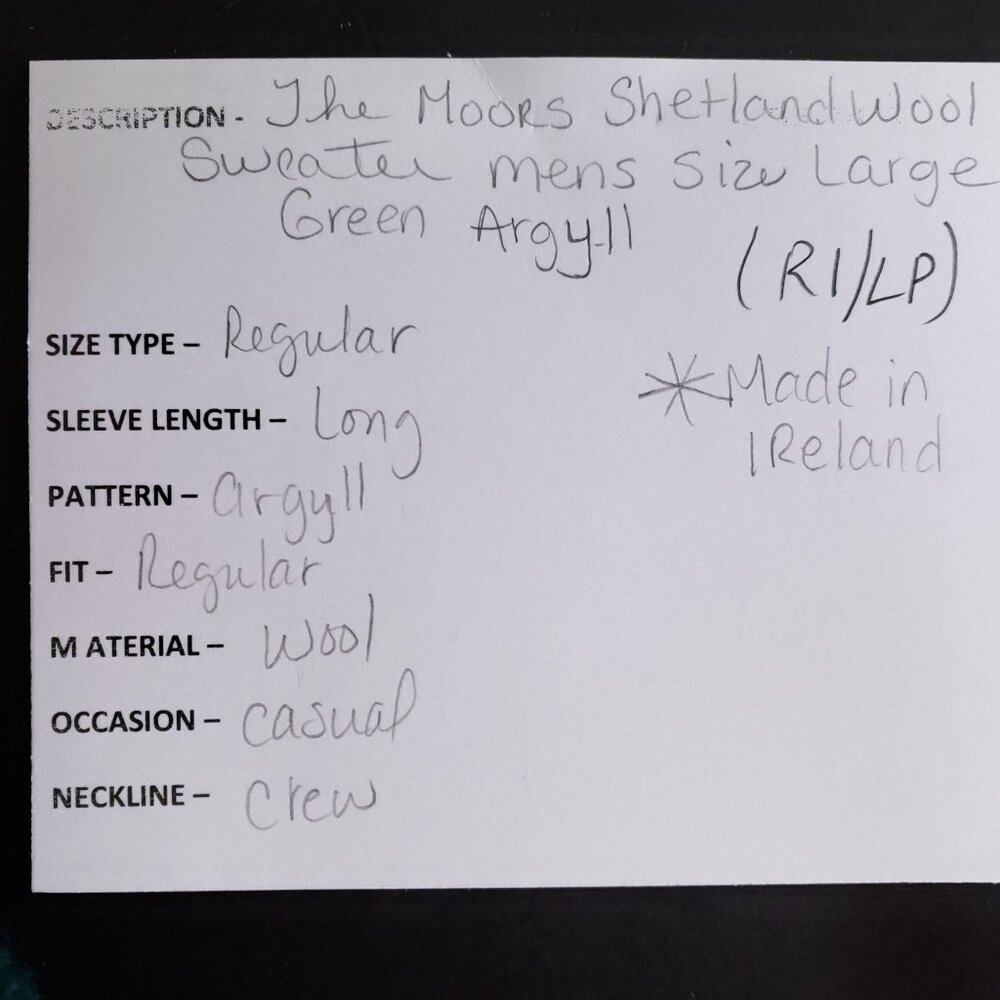 DESCRIPTION - The Moors Shetland Wool
Sweater mens size Large
Green Argyll
(R1/LP)
SIZE TYPE – Regular
*Made in
IReland
SLEEVE LENGTH – Long
PATTERN – argyll
FIT – Regular
M ATERIAL – Wool
OCCASION – casual
NECKLINE – crew